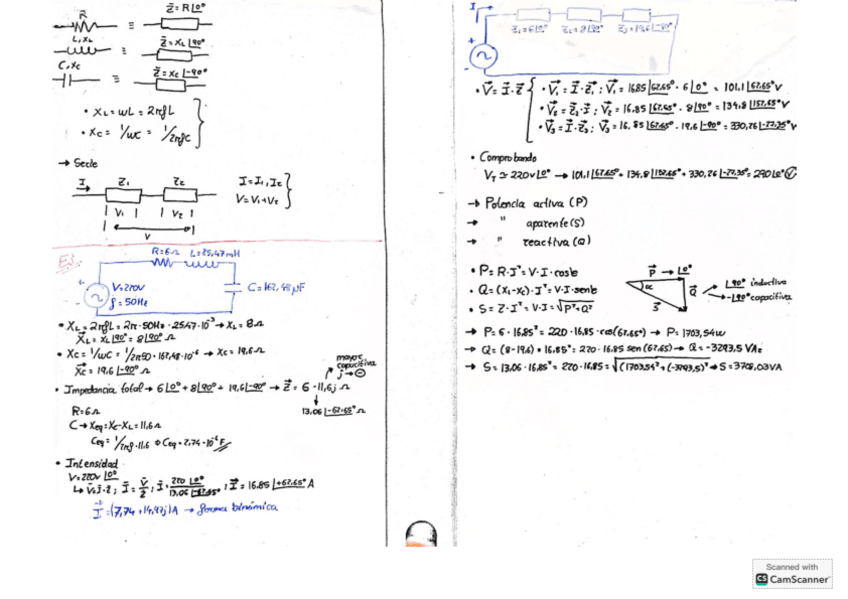 R ≡ Z̄=R|0°
L, XL ≡ Z̄=XL|90°
C, XC ≡ Z̄=XC|-90°
• XL=ωL=2πfL
• XC=1/ωC=1/2πfC
→ Serie
I Z1 Z2 I=I1, I2
V=V1+V2
V1 V2
V
R=6Ω L=25,47mH
V=220V
f=50Hz
C=162,48μF
• XL=2πfL=2π·50Hz·25,47·10⁻³→XL=8Ω
XL=XL|90°=8|90°Ω
• XC=1/ωC=1/2π50·162,48·10⁻⁶→XC=19,6Ω
XC=19,6|-90°Ω
mayor
capacitiva
j→⊖
• Impedancia total→6|0°+8|90°+19,6|-90°→Z=6-11,6jΩ
13,06|-62,65°Ω
R=6Ω
C→Xeq=XC-XL=11,6Ω
Ceq=1/2πf·11,6 Ceq=2,74·10⁻⁴F
• Intensidad
V=220V|0°
V=I·Z; I=V/Z; I=220|0°/13,06|-62,65°; I=16,85|+62,65°A
I=(7,74+14,97j)A→forma binómica
I
Z1=6|0° Z2=8|90° Z3=19,6|-90°
• V=I·Z V1=I·Z1; V1=16,85|62,65°·6|0°=101,1|62,65°V
• V2=Z2·I; V2=16,85|62,65°·8|90°=134,8|152,65°V
• V3=I·Z3; V3=16,85|62,65°·19,6|-90°=330,26|-27,35°V
• Comprobando
VT≃220V|0°→101,1|62,65°+134,8|152,65°+330,26|-27,35°=220|0°V
→ Potencia activa (P)
→ " aparente (S)
→ " reactiva (Q)
• P=R·I²=V·I·cosφ
• Q=(XL-XC)·I²=V·I·senφ
• S=Z·I²=V·I=√P²+Q²
P→|0°
α
Q
S
|90° inductiva
-|90° capacitiva
→ P=6·16,85²=220·16,85·cos(62,65°)→P=1703,54W
→ Q=(8-19,6)·16,85²=220·16,85 sen(62,65)→Q=-3293,5VAr
→ S=13,06·16,85²=220·16,85=√(1703,54²+(-3293,5)²→S=3708,03VA
Scanned with
CS CamScanner